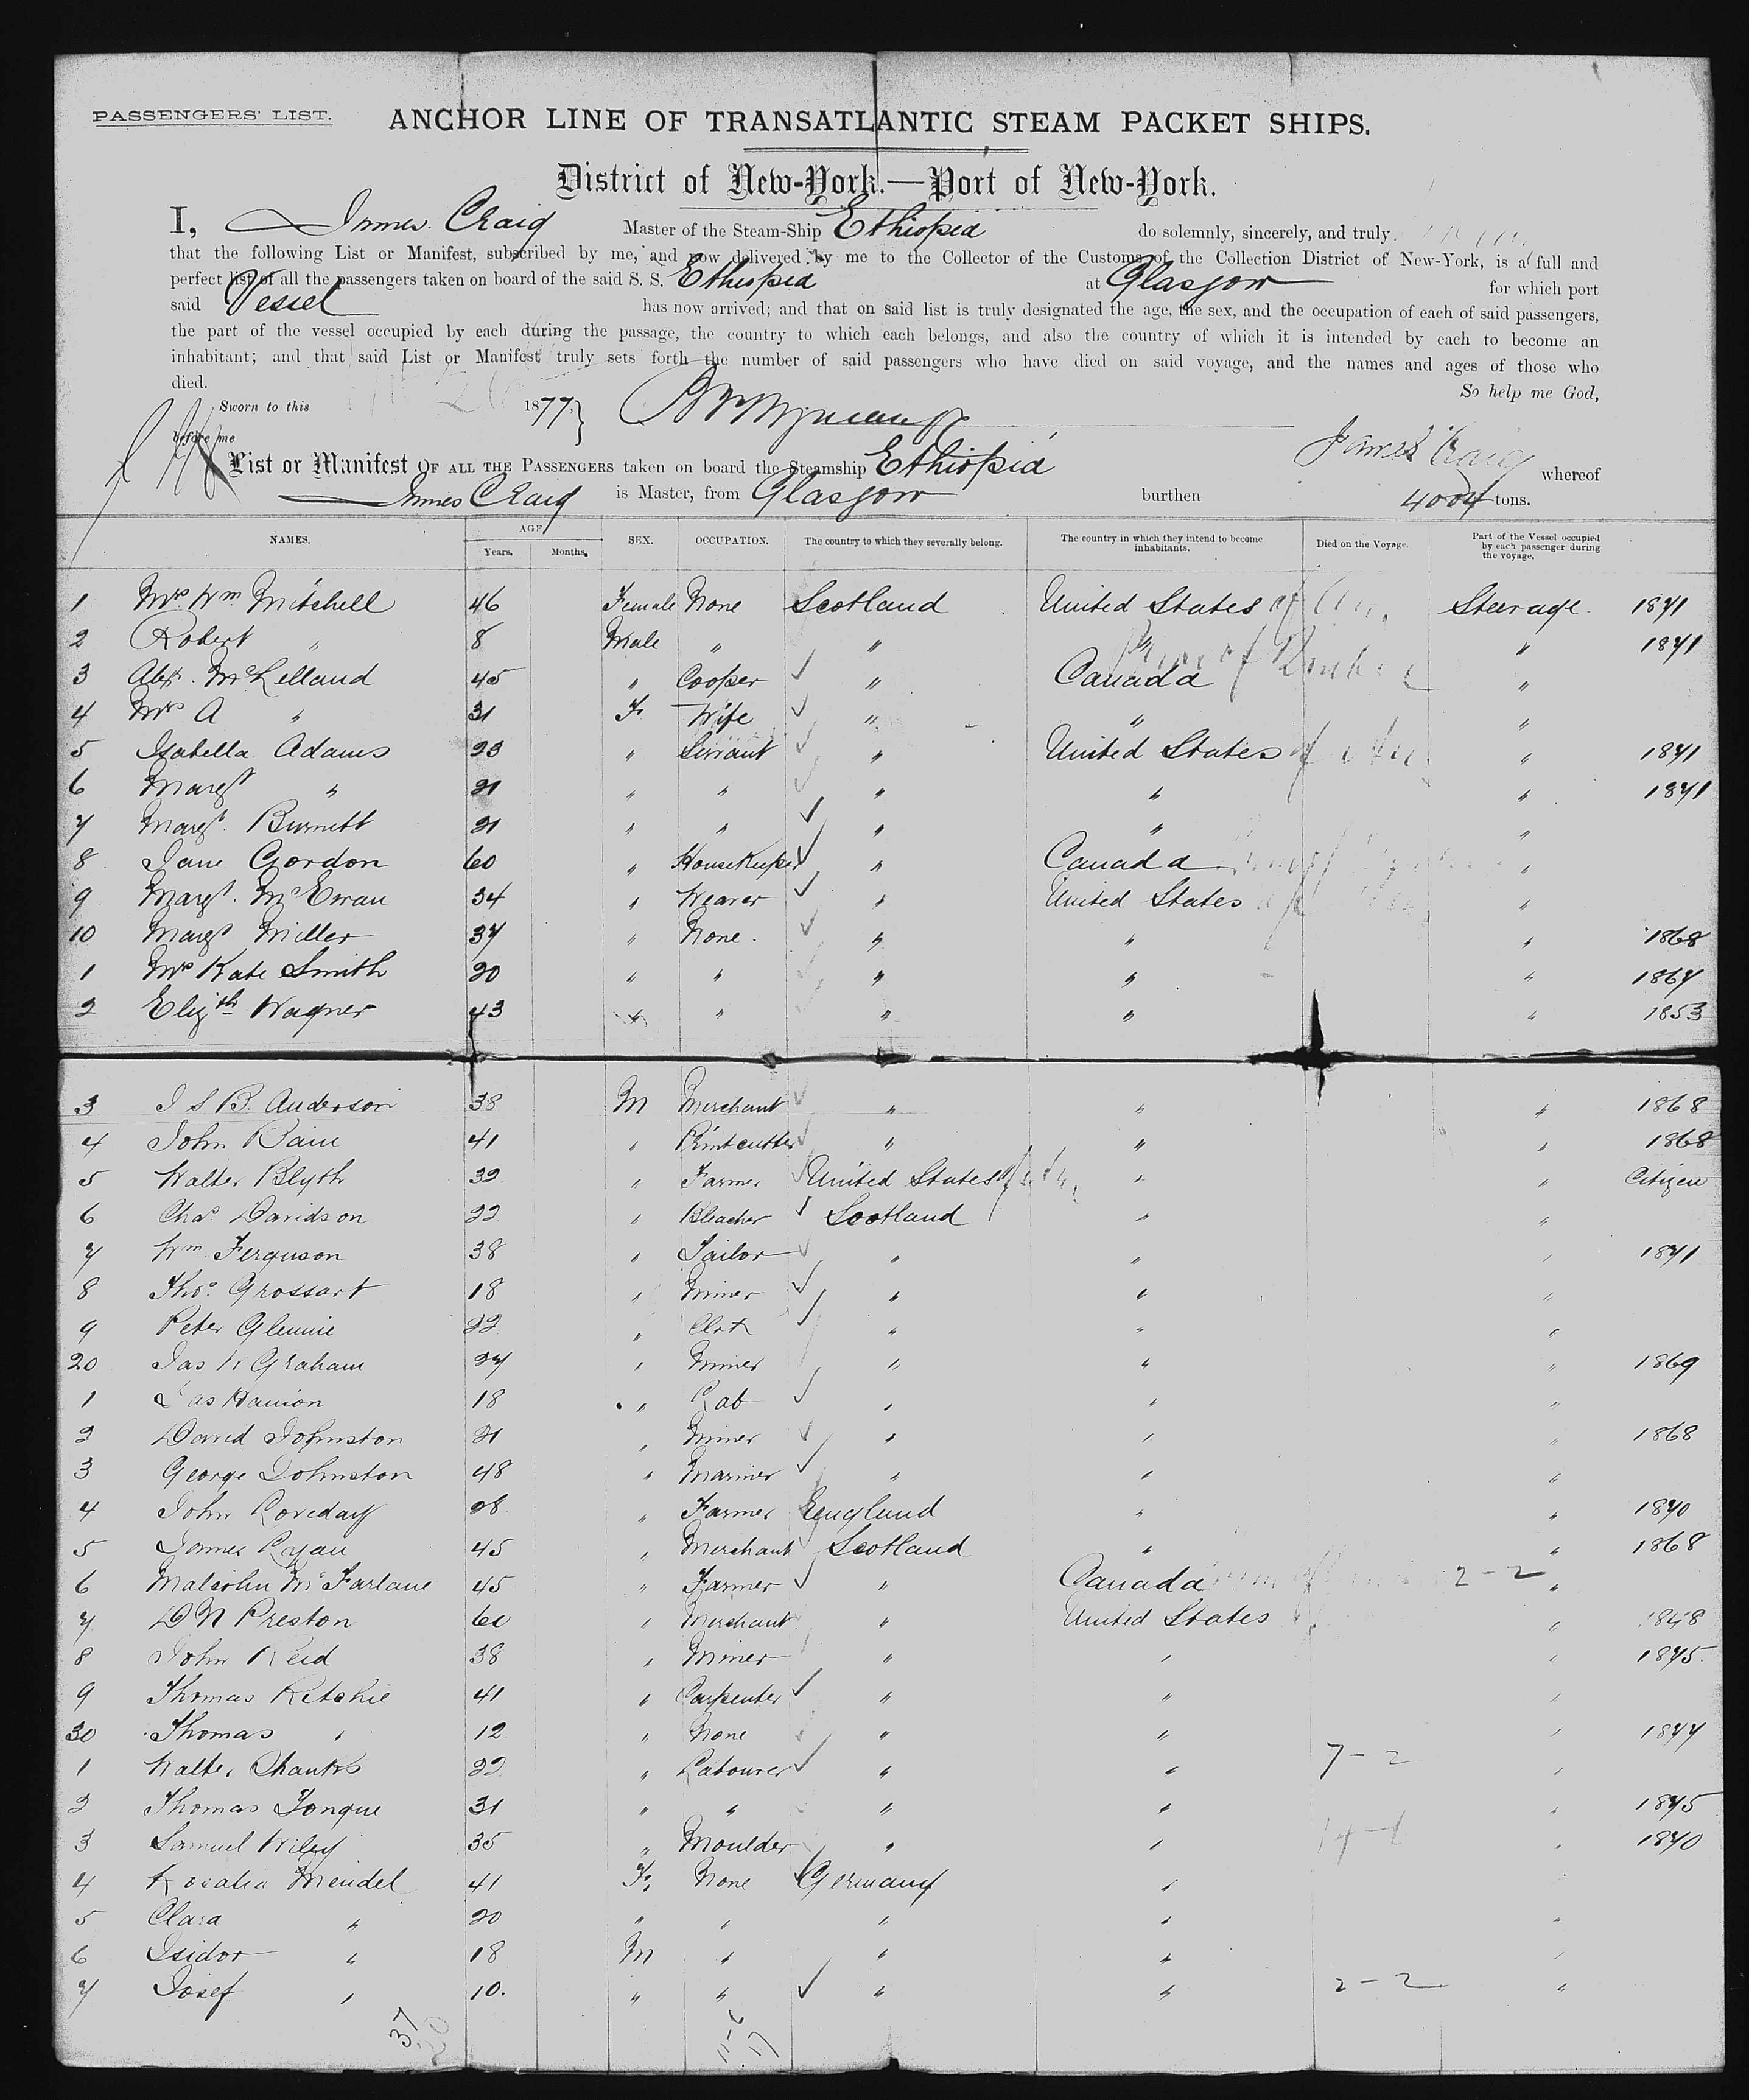 PASSENGERS' LIST.
ANCHOR LINE OF TRANSATLANTIC STEAM PACKET SHIPS.
District of New-York.—Port of New-York.
I, James Craig Master of the Steam-Ship Ethiopia do solemnly, sincerely, and truly
that the following List or Manifest, subscribed by me, and now delivered by me to the Collector of the Customs of the Collection District of New-York, is a full and
perfect list of all the passengers taken on board of the said S. S. Ethiopia at Glasgow for which port
said Vessel has now arrived; and that on said list is truly designated the age, the sex, and the occupation of each of said passengers,
the part of the vessel occupied by each during the passage, the country to which each belongs, and also the country of which it is intended by each to become an
inhabitant; and that said List or Manifest truly sets forth the number of said passengers who have died on said voyage, and the names and ages of those who
died. So help me God,
Sworn to this 26 1877
before me James Craig
List or Manifest OF ALL THE PASSENGERS taken on board the Steamship Ethiopia whereof
James Craig is Master, from Glasgow burthen 4004 tons.
NAMES. AGE Years. Months. SEX. OCCUPATION. The country to which they severally belong. The country in which they intend to become inhabitants. Died on the Voyage. Part of the Vessel occupied by each passenger during the voyage.
1 Mrs Wm Mitchell 46 Female None Scotland United States of Am. Steerage 1871
2 Robert " 8 Male " " " " 1871
3 Alexr. McLelland 45 " Cooper " Canada "
4 Mrs A " 31 F Wife " " "
5 Isabella Adams 23 " Servant " United States of Am " 1871
6 Margt " 21 " " " " " 1871
7 Margt. Burnett 21 " " " " "
8 Jane Gordon 60 " Housekeeper " Canada "
9 Margt. McEwan 34 " Weaver " United States "
10 Margt Miller 37 " None " " " 1868
1 Mrs Kate Smith 20 " " " " " 1867
2 Elizth Wagner 43 " " " " " 1853
3 J S B. Anderson 38 M Merchant " " " 1868
4 John Bain 41 " Printcutter " " " 1868
5 Walter Blyth 39 " Farmer United States " " Citizen
6 Chas Davidson 22 " Bleacher Scotland " "
7 Wm Ferguson 38 " Tailor " " " 1871
8 Thos. Grossart 18 " Miner " " "
9 Peter Glennie 22 " Clerk " " "
20 Jas W Graham 27 " Miner " " " 1869
1 Jas 18 " Lab " " "
2 David Johnston 21 " Miner " " " 1868
3 George Johnston 48 " Mariner " " "
4 John Loveday 28 " Farmer England " " 1870
5 James Ryan 45 " Merchant Scotland " " 1868
6 Malcolm McFarlane 45 " Farmer " Canada 2-2 "
7 D N Preston 60 " Merchant " United States " 1848
8 John Reid 38 " Miner " " " 1875
9 Thomas Ritchie 41 " Carpenter " " "
30 Thomas " 12 " None " " " 1877
1 Walter Shanks 22 " Labourer " " 7-2 "
2 Thomas Tongue 31 " " " " " 1875
3 Samuel Wiley 35 " Moulder " " " 1870
4 Rosalia Mendel 41 F. None Germany "
5 Clara " 20 " " " " "
6 Isidor " 18 M " " " "
7 Josef " 10. " " " " 2-2 "
37